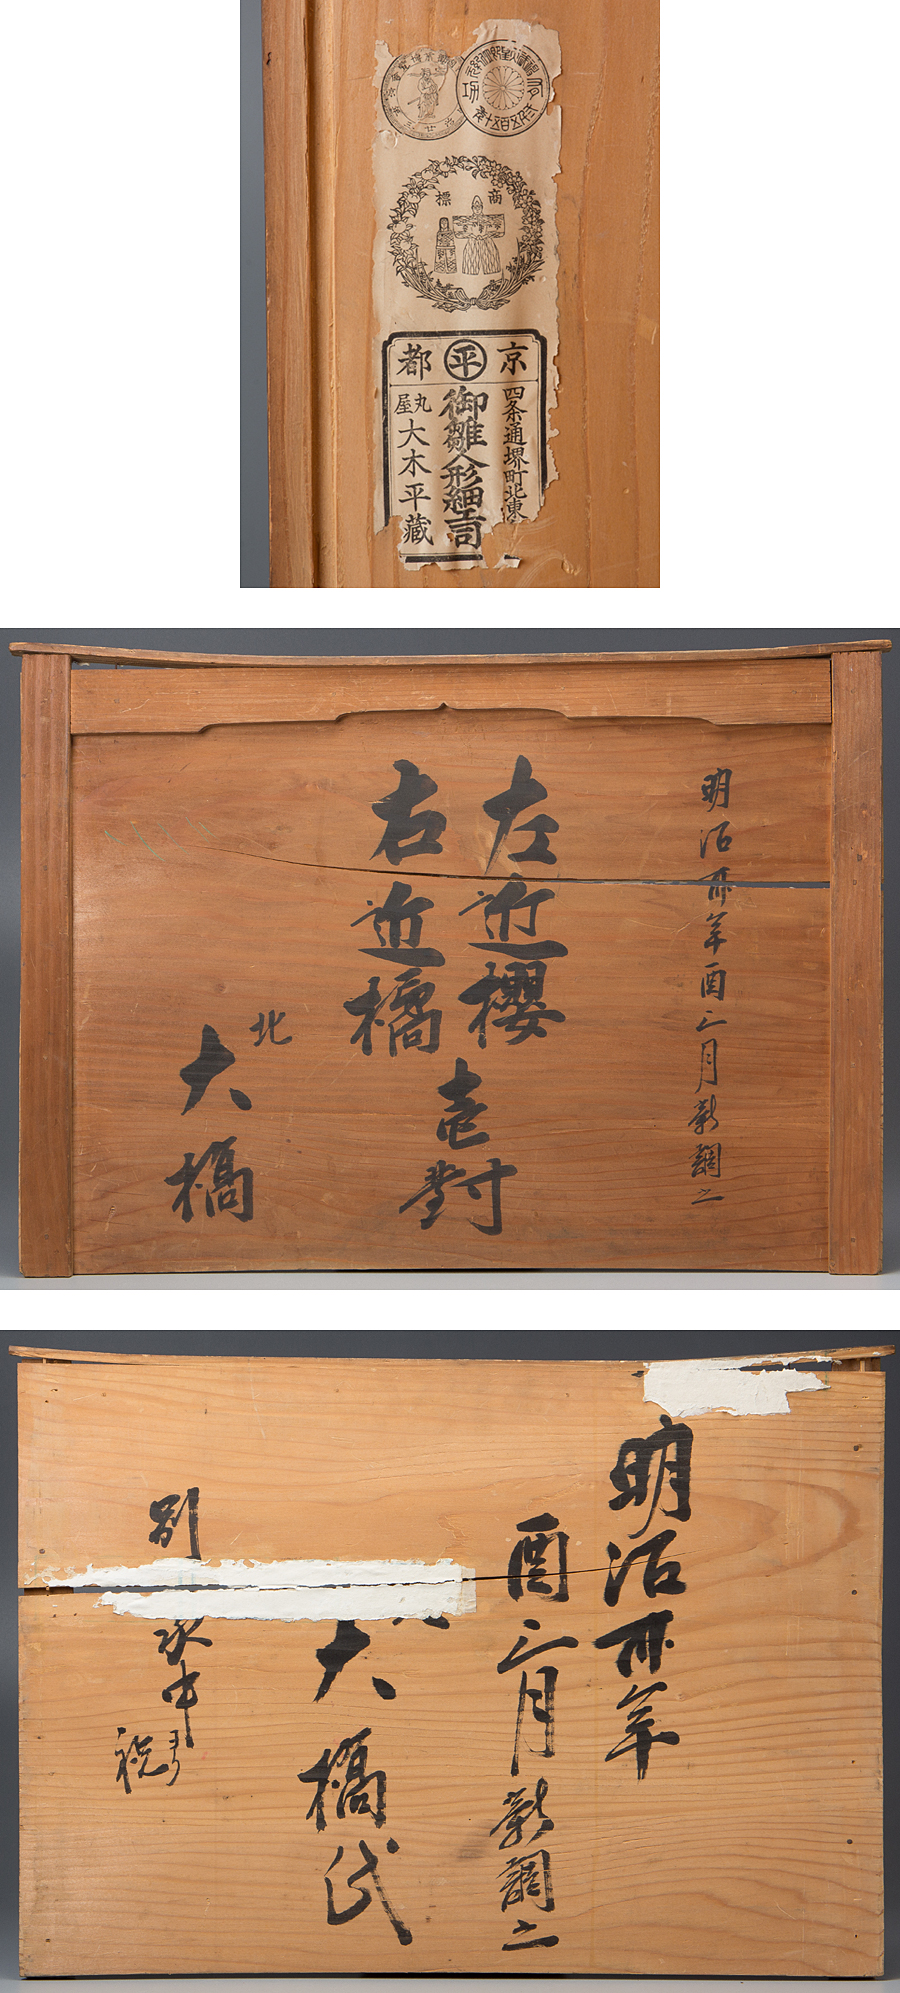 商標
京㊥都
四条通堺町北東
御雛人形細工司
丸屋
大木平蔵
明治卅年酉三月新調之
左近櫻
右近橘
壱對
北
大橋
明治卅年
酉三月新調之
大橋氏
別
中
祝